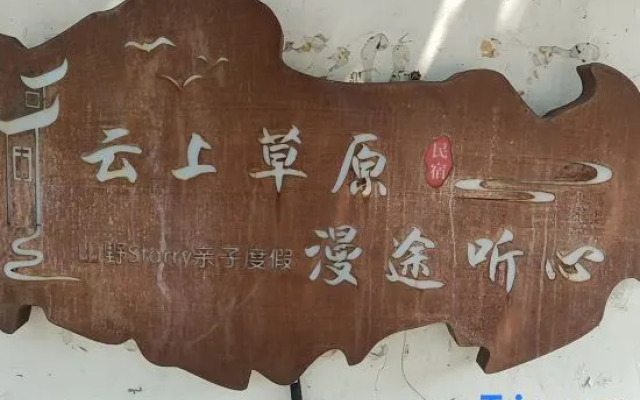 云上草原
民宿
山野Starry亲子度假
漫途听心